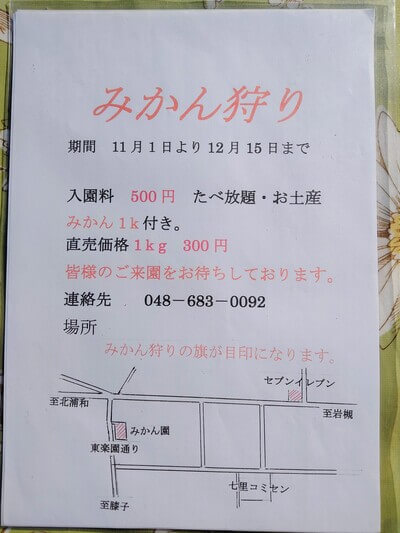 みかん狩り
期間　11月1日より12月15日まで
入園料　500円　たべ放題・お土産
みかん1k付き。
直売価格1kg　300円
皆様のご来園をお待ちしております。
連絡先　048－683－0092
場所
みかん狩りの旗が目印になります。
セブンイレブン
至北浦和
至岩槻
みかん園
東楽園通り
七里コミセン
至膝子